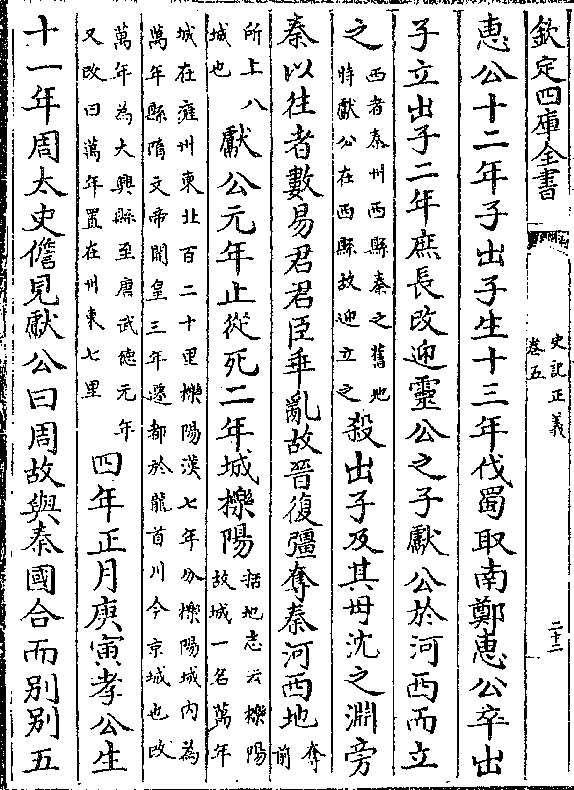 欽定四庫全書
史記正義
卷五
二十二
惠公十二年子出子生十三年伐蜀取南鄭惠公卒出
子立出子二年庶長改迎靈公之子獻公於河西而立
之
西者秦州西縣秦之舊地
時獻公在西縣故迎立之
殺出子及其母沈之淵旁
秦以往者數易君君臣乖亂故晉復彊奪秦河西地
奪
前
所上八
城也
獻公元年止從死二年城櫟陽
括地志云櫟陽
故城一名萬年
城在雍州東北百二十里櫟陽漢七年分櫟陽城內為
萬年縣隋文帝開皇三年遷都於龍首川今京城也改
萬年為大興縣至唐武德元年
又改曰萬年置在州東七里
四年正月庚寅孝公生
十一年周太史儋見獻公曰周故與秦國合而別別五